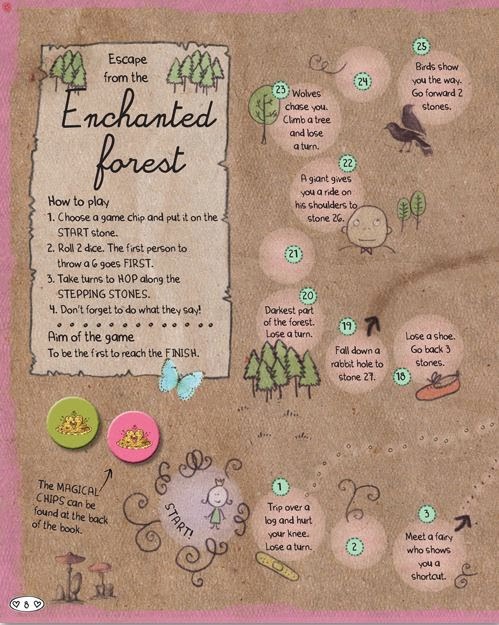 Escape
from the
Enchanted
forest
How to play
1. Choose a game chip and put it on the
START stone.
2. Roll 2 dice. The first person to
throw a 6 goes FIRST.
3. Take turns to HOP along the
STEPPING STONES.
4. Don't forget to do what they say!
Aim of the game
To be the first to reach the FINISH.
The MAGICAL
CHIPS can be
found at the back
of the book.
START!
1
Trip over a
log and hurt
your knee.
Lose a turn.
2
3
Meet a fairy
who shows
you a
shortcut.
18
Lose a shoe.
Go back 3
stones.
19
Fall down a
rabbit hole to
stone 27.
20
Darkest part
of the forest.
Lose a turn.
21
22
A giant gives
you a ride on
his shoulders to
stone 26.
23
Wolves
chase you.
Climb a tree
and lose
a turn.
24
25
Birds show
you the way.
Go forward 2
stones.
8